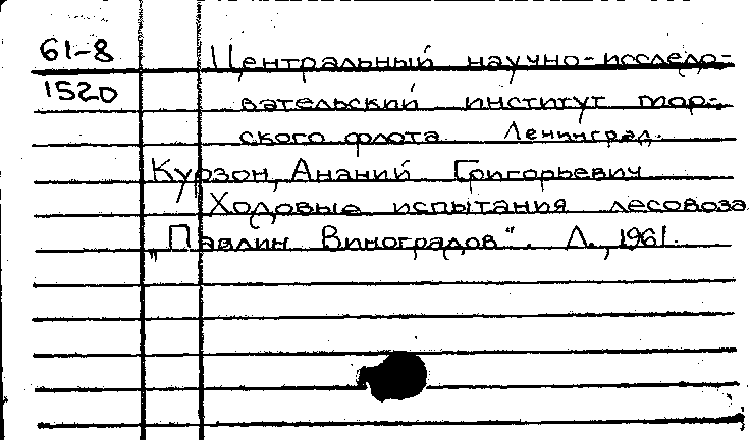 61-8 Центральный научно-исследо-
1520 вательский институт мор-
ского флота Ленинград.
Курзон, Ананий Григорьевич
Ходовые испытания лесовоза
„Павлин Виноградов". Л., 1961.